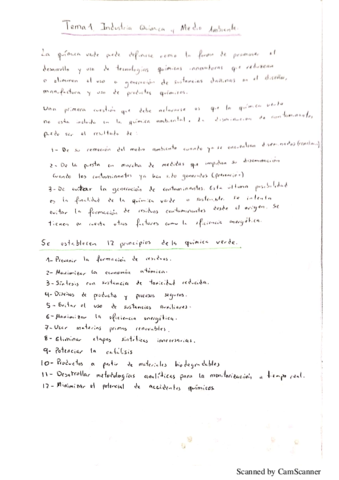 Tema 1 Industria Química y Medio Ambiente
La química verde puede definirse como la forma de promover el
desarrollo y uso de tecnologías químicas innovadoras que reduzcan
o eliminen el uso o generación de sustancias dañinas en el diseño,
manufactura y uso de productos químicos.
Una primera cuestión que debe matizarse es que la química verde
no esta química ambiental, disminución de contaminantes
puede ser el resultado de:
1- De su remoción del medio ambiente cuando ya se encuentran
2- De la puesta en marcha de medidas que impidan su diseminación
cuando los contaminantes ya han sido generados
3- De evitar la generación de contaminantes. Esta última posibilidad
es la finalidad de la química verde o sostenible
evitar la formación de residuos contaminantes desde el origen. Se
tienen en cuenta otros factores como la eficiencia energética.
Se establecen 12 principios de la química verde.
1- Prevenir la formación de residuos.
2- Maximizar la economía atómica.
3- Síntesis con sustancias de toxicidad reducida.
4- Diseños de producto y procesos seguros.
5- Evitar el uso de sustancias auxiliares.
6- Maximizar la eficiencia energética.
7- Usar materias primas renovables.
8- Eliminar etapas sintéticas innecesarias.
9- Potenciar la catálisis
10- Productos a partir de materiales biodegradables
11- Desarrollar metodologías analíticas para la monitorización a tiempo real.
12- Minimizar el potencial de accidentes químicos
Scanned by CamScanner